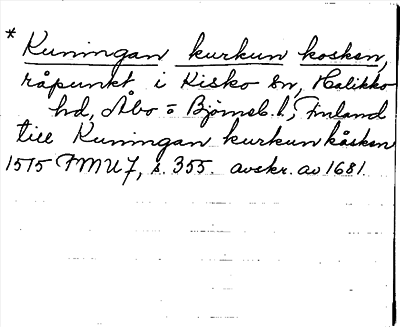 * Kuningan kurkun kosken,
råpunkt i Kisko sn, Halikko
hd, Åbo o Björneb. l, Finland
till Kuningan kurkun kåsken
1515 FMU 7, s. 355. avskr. av 1681.